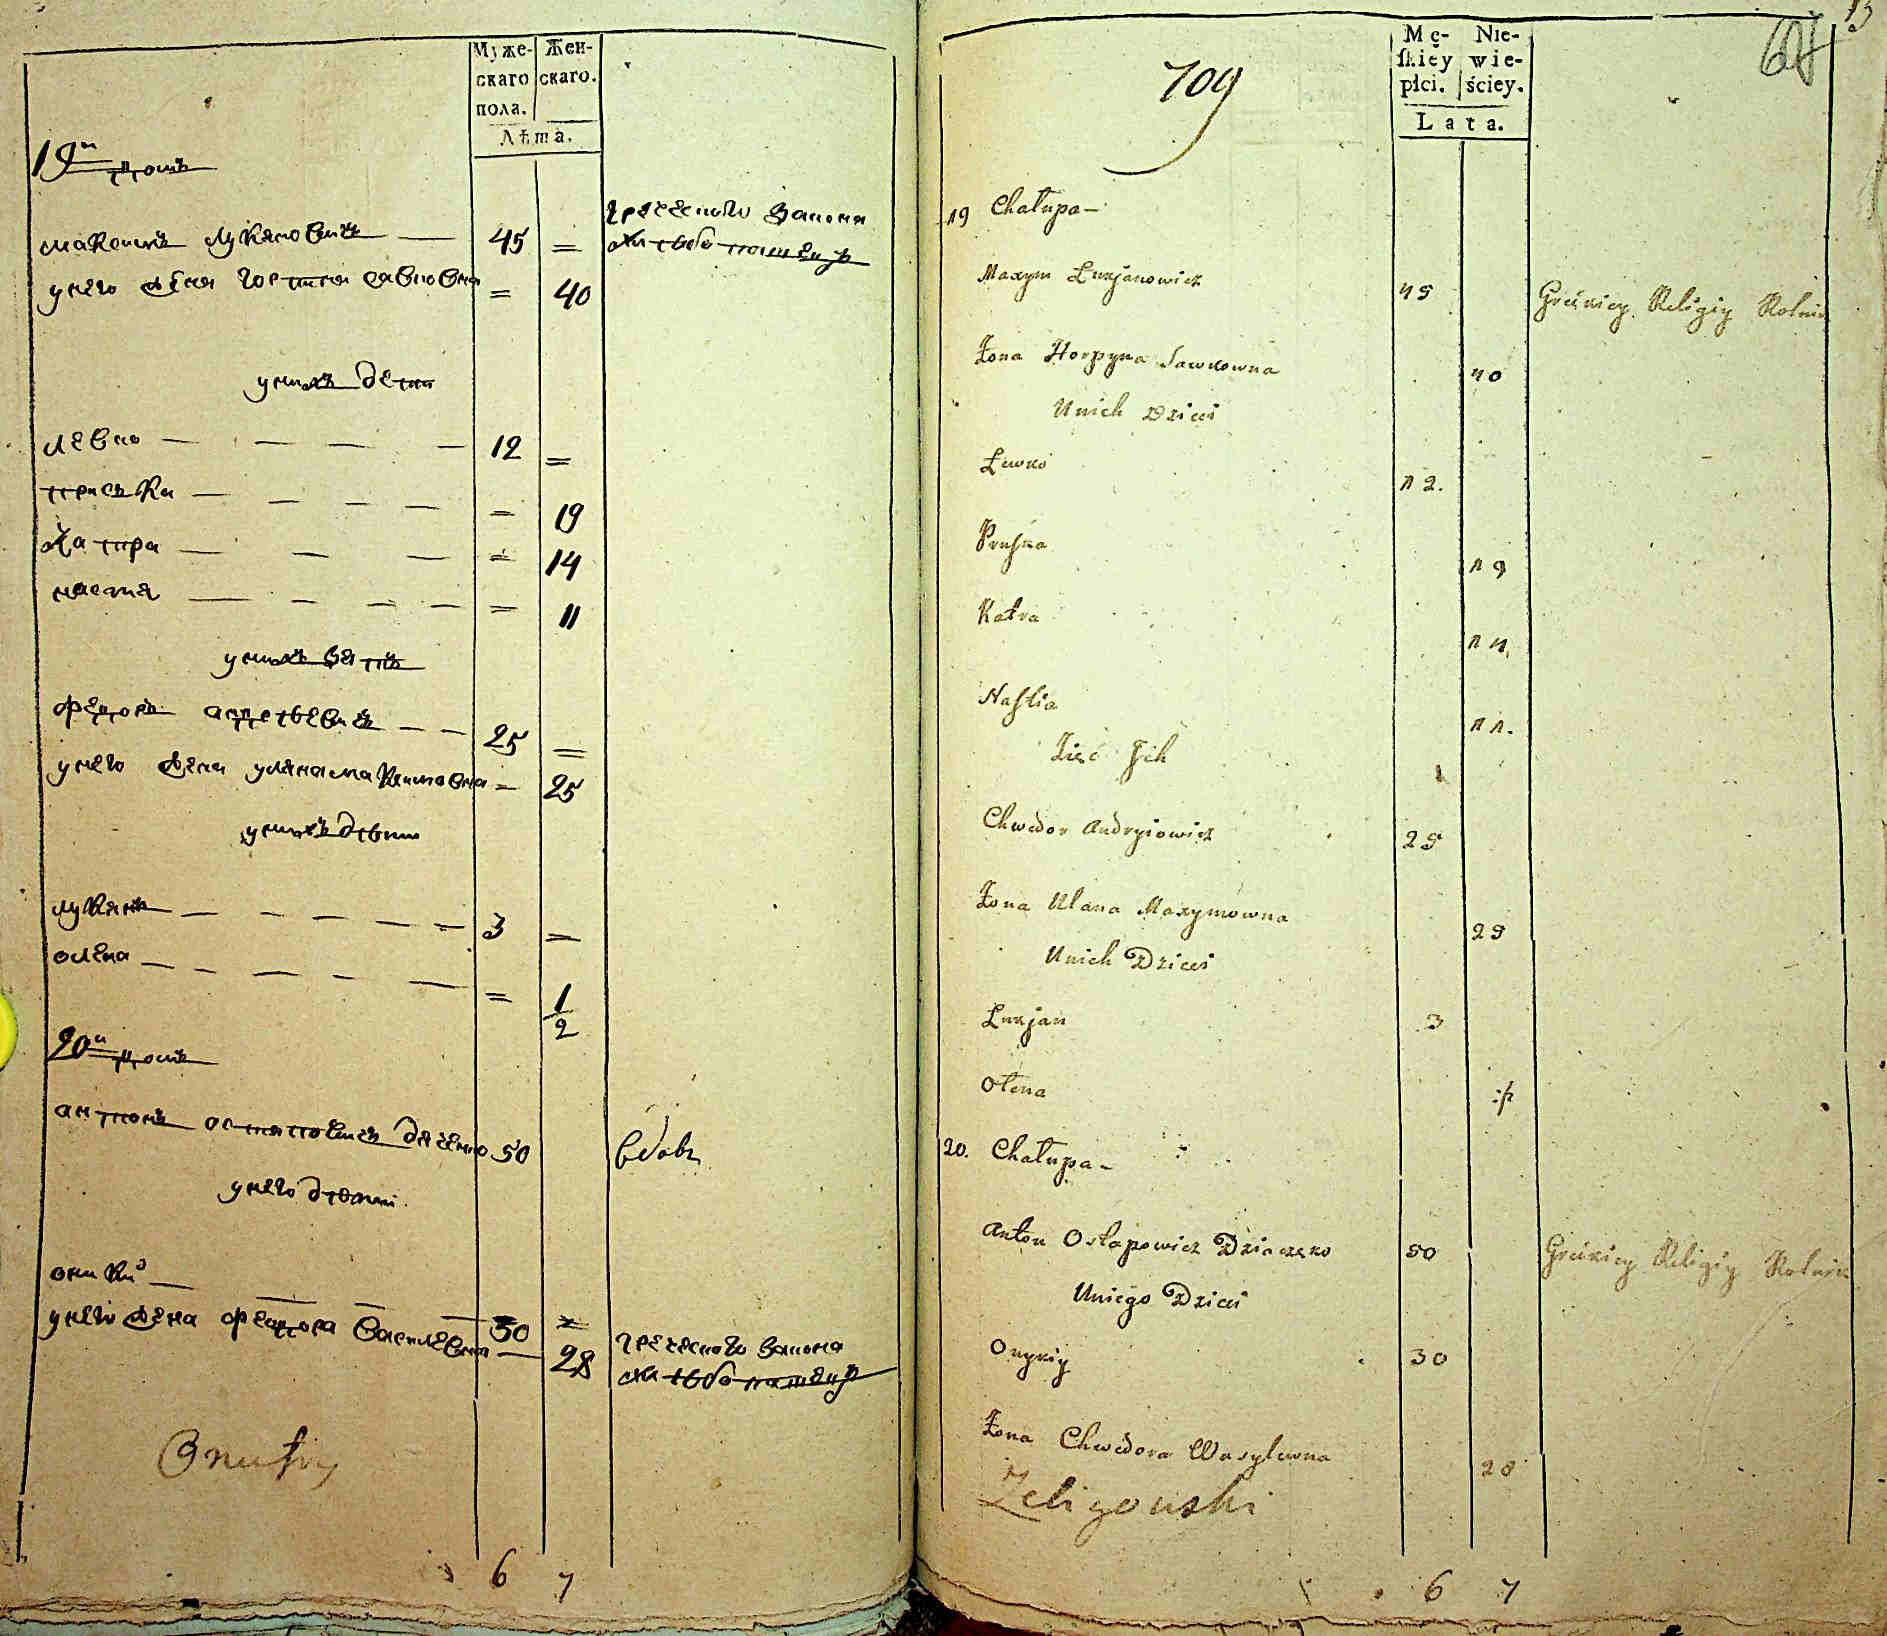 Муже-
скаго
пола.
Жен-
скаго.
Лѣта.
19й домъ
максимъ лукяновичъ — 45 =
греческого закона
хлѣбопашецъ
унего жена горпина савковна = 40
унихъ дети
левко — — — — 12 =
приська — — — — = 19
катра — — — = 14
настя — — — — = 11
унихъ зять
федоръ андрѣевичъ — — 25 =
унего жена уляна максимовна = 25
унихъ дѣти
лукянъ — — — — — 3 =
олена — — — — — = 1/2
20й домъ
антонъ остаповичъ дяченко 50
вдовъ
унего дѣти
оникій — — — — 30 =
унего жена федора василевна — 28
греческого закона
хлѣбопашецъ
6 7
709
Mę-
skiey
płci.
Nie-
wie-
ściey.
Lata.
19 Chałupa —
Maxym Łukjanowicz 45
Greckiey Religiy Rolnik
Żona Horpyna Sawkowna 40
Unich Dzieci
Lewko 12.
Pryska 19
Katra 14.
Nastia 11.
Zięć Jch
Chwedor Andryiowicz 25
Żona Ulana Maxymowna 25
Unich Dzieci
Łukjan 3
Ołena
20. Chałupa —
Anton Ostapowicz Dziaczęko 50
Greckiey Religiy Rolnik
Uniego Dzieci
Onykiy 30
Żona Chwedora Wasylewna 28
Zeligowski
6 7